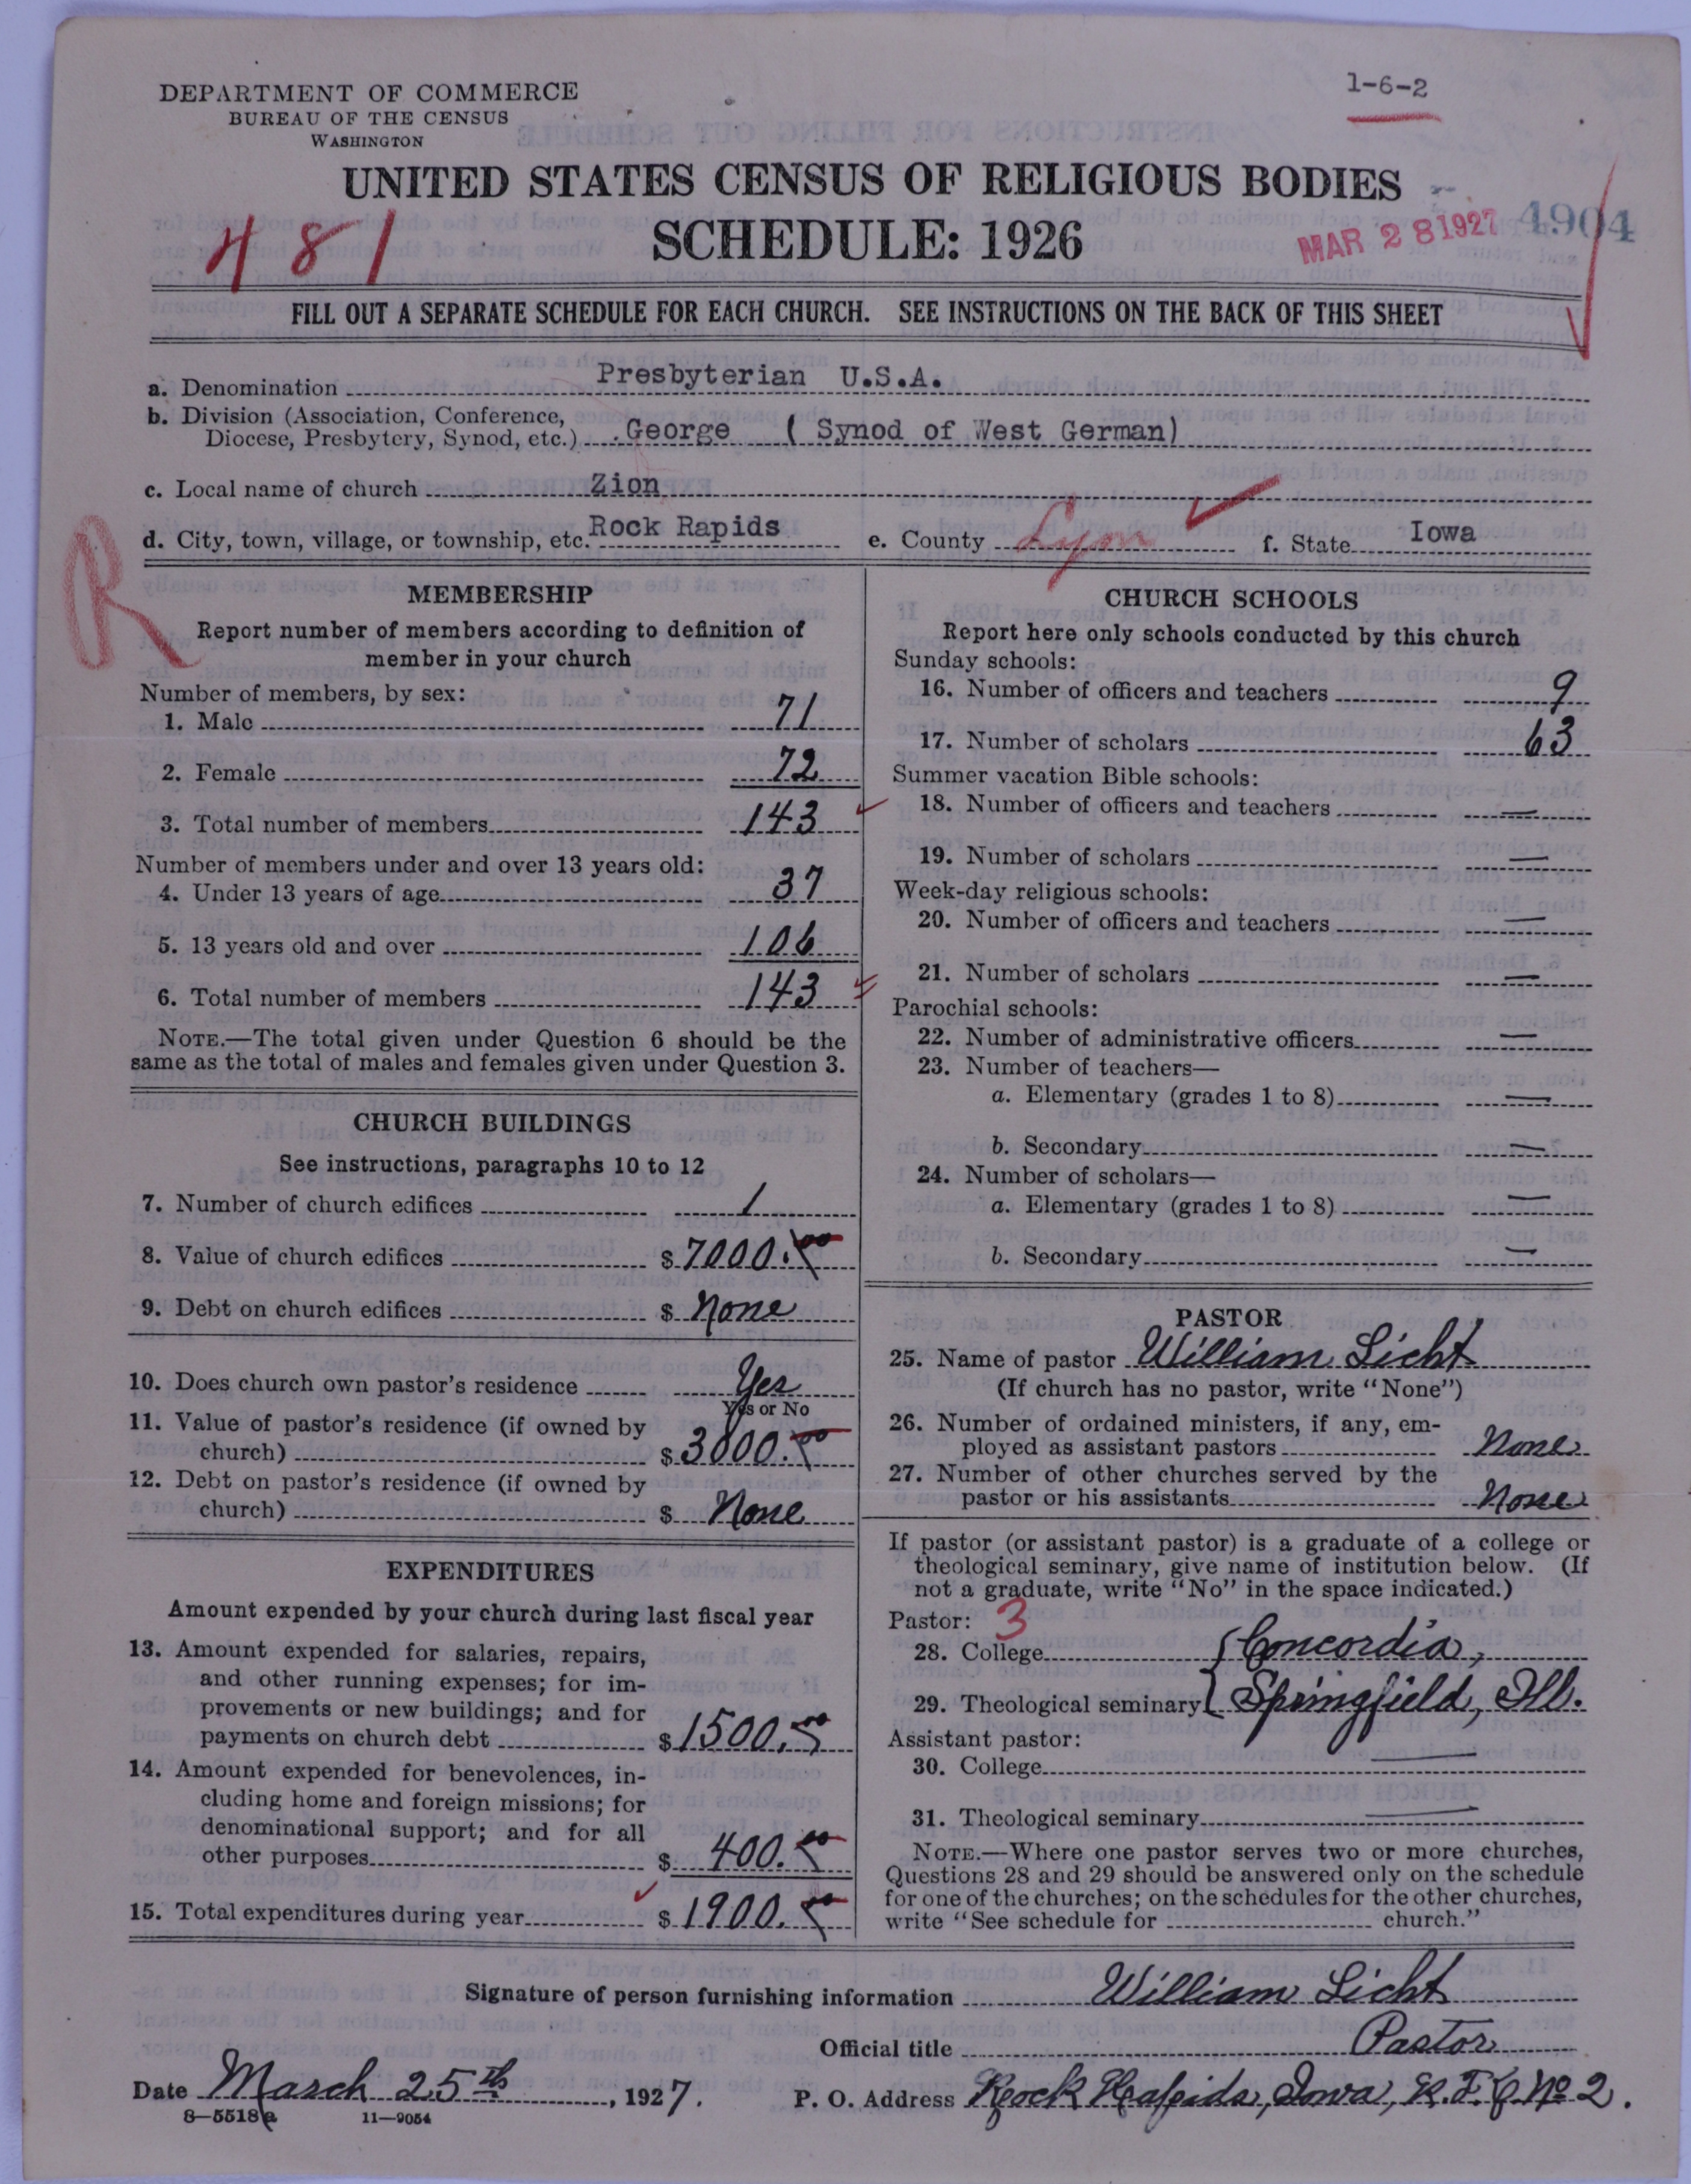 1-6-2
DEPARTMENT OF COMMERCE
BUREAU OF THE CENSUS
WASHINGTON
UNITED STATES CENSUS OF RELIGIOUS BODIES
SCHEDULE: 1926
481
MAR 28 1927
4904
FILL OUT A SEPARATE SCHEDULE FOR EACH CHURCH. SEE INSTRUCTIONS ON THE BACK OF THIS SHEET
a. Denomination Presbyterian U.S.A.
b. Division (Association, Conference,
Diocese, Presbytery, Synod, etc.) George ( Synod of West German)
c. Local name of church Zion
d. City, town, village, or township, etc. Rock Rapids e. County Lyon f. State Iowa
R
MEMBERSHIP
Report number of members according to definition of
member in your church
Number of members, by sex:
1. Male 71
2. Female 72
3. Total number of members 143
Number of members under and over 13 years old:
4. Under 13 years of age 37
5. 13 years old and over 106
6. Total number of members 143
NOTE.—The total given under Question 6 should be the
same as the total of males and females given under Question 3.
CHURCH BUILDINGS
See instructions, paragraphs 10 to 12
7. Number of church edifices 1
8. Value of church edifices $ 7000.00
9. Debt on church edifices $ None
10. Does church own pastor's residence Yes
Yes or No
11. Value of pastor's residence (if owned by
church) $ 3000.00
12. Debt on pastor's residence (if owned by
church) $ None
EXPENDITURES
Amount expended by your church during last fiscal year
13. Amount expended for salaries, repairs,
and other running expenses; for im-
provements or new buildings; and for
payments on church debt $ 1500.00
14. Amount expended for benevolences, in-
cluding home and foreign missions; for
denominational support; and for all
other purposes $ 400.00
15. Total expenditures during year $ 1900.00
CHURCH SCHOOLS
Report here only schools conducted by this church
Sunday schools:
16. Number of officers and teachers 9
17. Number of scholars 63
Summer vacation Bible schools:
18. Number of officers and teachers —
19. Number of scholars —
Week-day religious schools:
20. Number of officers and teachers —
21. Number of scholars —
Parochial schools:
22. Number of administrative officers —
23. Number of teachers—
a. Elementary (grades 1 to 8) —
b. Secondary —
24. Number of scholars—
a. Elementary (grades 1 to 8) —
b. Secondary —
PASTOR
25. Name of pastor William Licht
(If church has no pastor, write "None")
26. Number of ordained ministers, if any, em-
ployed as assistant pastors None
27. Number of other churches served by the
pastor or his assistants None
If pastor (or assistant pastor) is a graduate of a college or
theological seminary, give name of institution below. (If
not a graduate, write "No" in the space indicated.)
Pastor: 3
28. College Concordia,
29. Theological seminary Springfield, Ill.
Assistant pastor:
30. College —
31. Theological seminary —
NOTE.—Where one pastor serves two or more churches,
Questions 28 and 29 should be answered only on the schedule
for one of the churches; on the schedules for the other churches,
write "See schedule for church."
Signature of person furnishing information William Licht
Official title Pastor
Date March 25th, 1927. P. O. Address Rock Rapids, Iowa, R.F.D. No 2.
8—5518a 11—9054